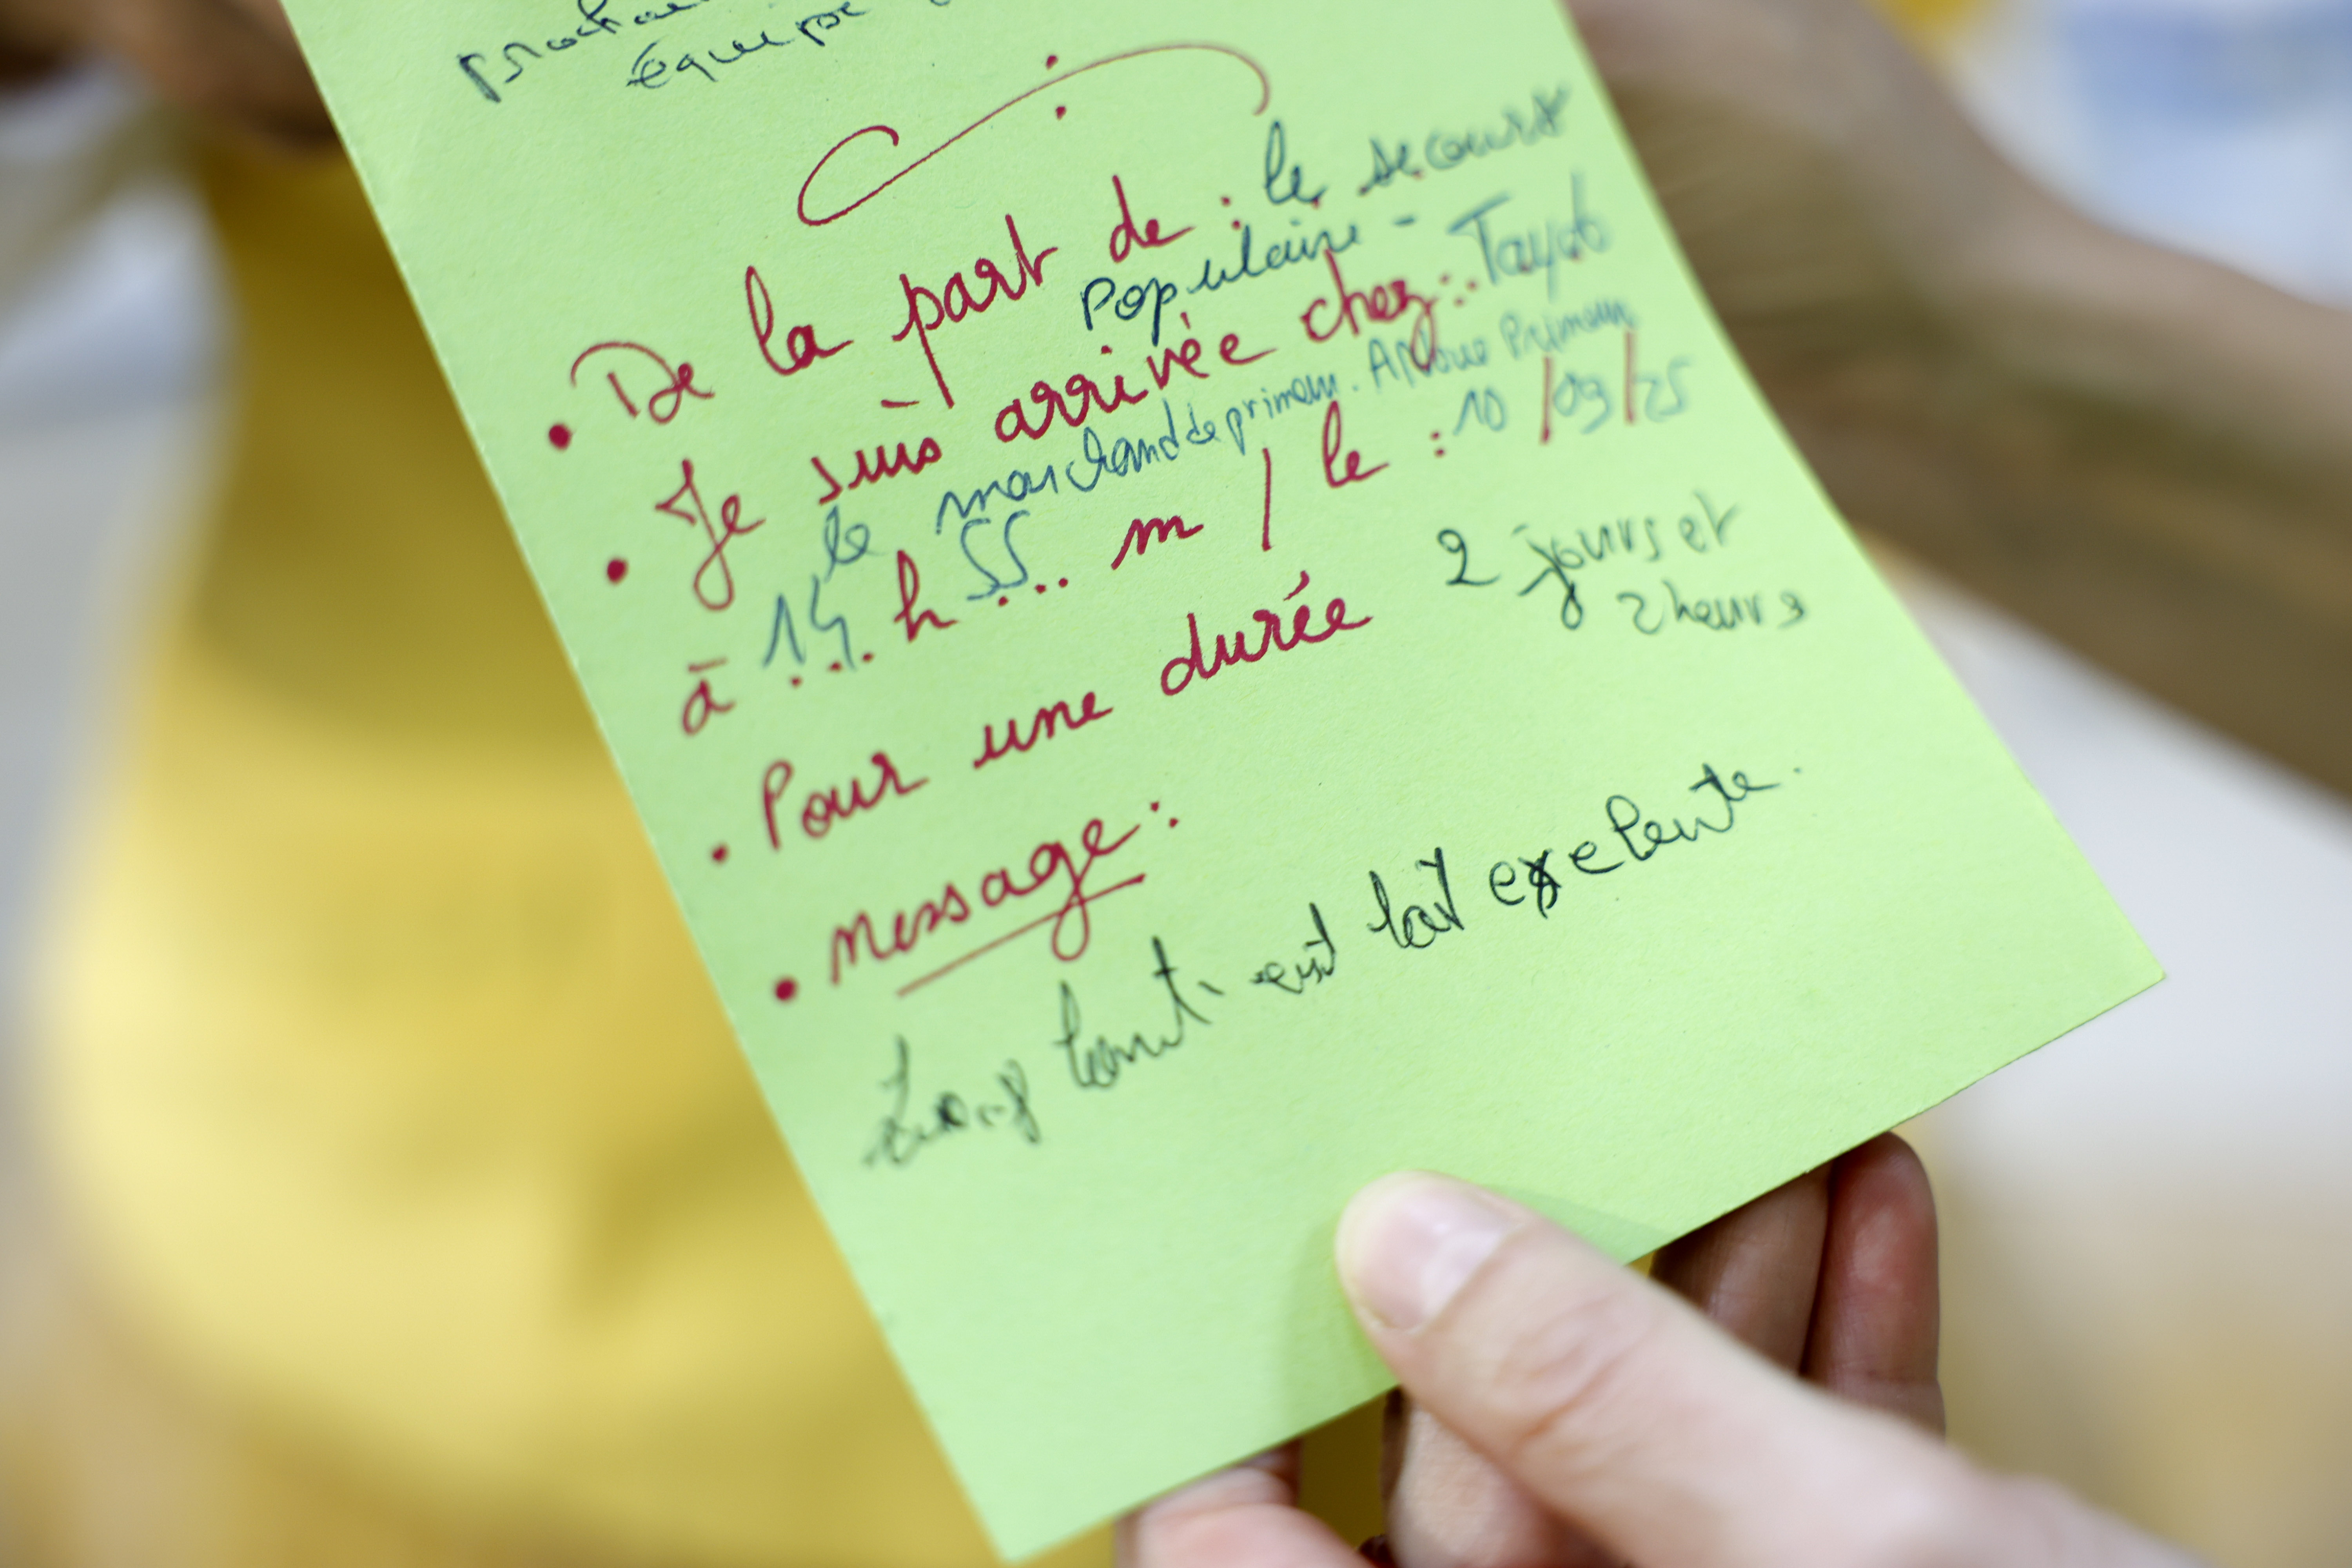 équipe
De la part de : le secours
Populaire -
Je suis arrivée chez : Tayeb
le marchand de primeur. Primeur
à 14 h 55 m / le : 10 /09/25
Pour une durée 2 jours et
2 heures
Message :
est tait exelente.